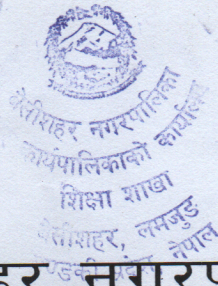 बेसीशहर नगरपालिका
कार्यपालिकाको कार्यालय
शिक्षा शाखा
बेसीशहर, लमजुङ
गण्डकी प्रदेश नेपाल